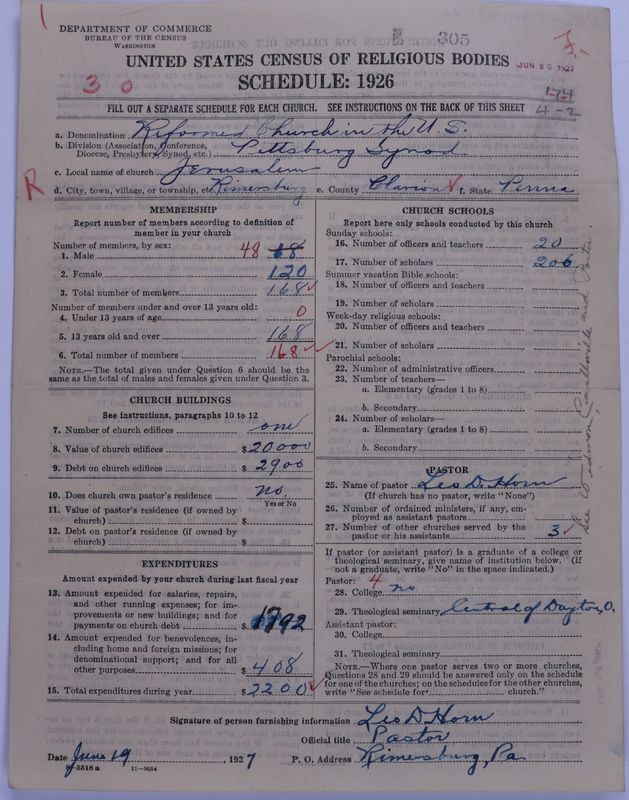 DEPARTMENT OF COMMERCE
BUREAU OF THE CENSUS
WASHINGTON
305
UNITED STATES CENSUS OF RELIGIOUS BODIES
JUN 20 1927
SCHEDULE: 1926
3 0
174
4-2
FILL OUT A SEPARATE SCHEDULE FOR EACH CHURCH. SEE INSTRUCTIONS ON THE BACK OF THIS SHEET
a. Denomination Reformed Church in the U.S.
b. Division (Association, Conference, Diocese, Presbytery, Synod, etc.) Pittsburg Synod.
c. Local name of church Jerusalem
R
d. City, town, village, or township, etc. Rimersburg e. County Clarion f. State Penna
MEMBERSHIP
Report number of members according to definition of
member in your church
Number of members, by sex:
1. Male 48
2. Female 120
3. Total number of members 168
Number of members under and over 13 years old:
4. Under 13 years of age 0
5. 13 years old and over 168
6. Total number of members 168
NOTE.—The total given under Question 6 should be the
same as the total of males and females given under Question 3.
CHURCH BUILDINGS
See instructions, paragraphs 10 to 12
7. Number of church edifices one
8. Value of church edifices $20000
9. Debt on church edifices $2900
10. Does church own pastor's residence no.
Yes or No
11. Value of pastor's residence (if owned by
church) $
12. Debt on pastor's residence (if owned by
church) $
EXPENDITURES
Amount expended by your church during last fiscal year
13. Amount expended for salaries, repairs,
and other running expenses; for im-
provements or new buildings; and for
payments on church debt $1792
14. Amount expended for benevolences, in-
cluding home and foreign missions; for
denominational support; and for all
other purposes $408
15. Total expenditures during year $2200
CHURCH SCHOOLS
Report here only schools conducted by this church
Sunday schools:
16. Number of officers and teachers 20
17. Number of scholars 206
Summer vacation Bible schools:
18. Number of officers and teachers
19. Number of scholars
Week-day religious schools:
20. Number of officers and teachers
21. Number of scholars
Parochial schools:
22. Number of administrative officers
23. Number of teachers—
a. Elementary (grades 1 to 8)
b. Secondary
24. Number of scholars—
a. Elementary (grades 1 to 8)
b. Secondary
PASTOR
25. Name of pastor Leo D. Horn
(If church has no pastor, write "None")
26. Number of ordained ministers, if any, em-
ployed as assistant pastors
27. Number of other churches served by the
pastor or his assistants 3
If pastor (or assistant pastor) is a graduate of a college or
theological seminary, give name of institution below. (If
not a graduate, write "No" in the space indicated.)
Pastor: 4
28. College no
29. Theological seminary Central of Dayton, O.
Assistant pastor:
30. College
31. Theological seminary
NOTE.—Where one pastor serves two or more churches,
Questions 28 and 29 should be answered only on the schedule
for one of the churches; on the schedules for the other churches,
write "See schedule for church."
Signature of person furnishing information Leo D Horn
Official title Pastor
Date June 19, 1927 P. O. Address Rimersburg, Pa.
8-5518 a 11-9664